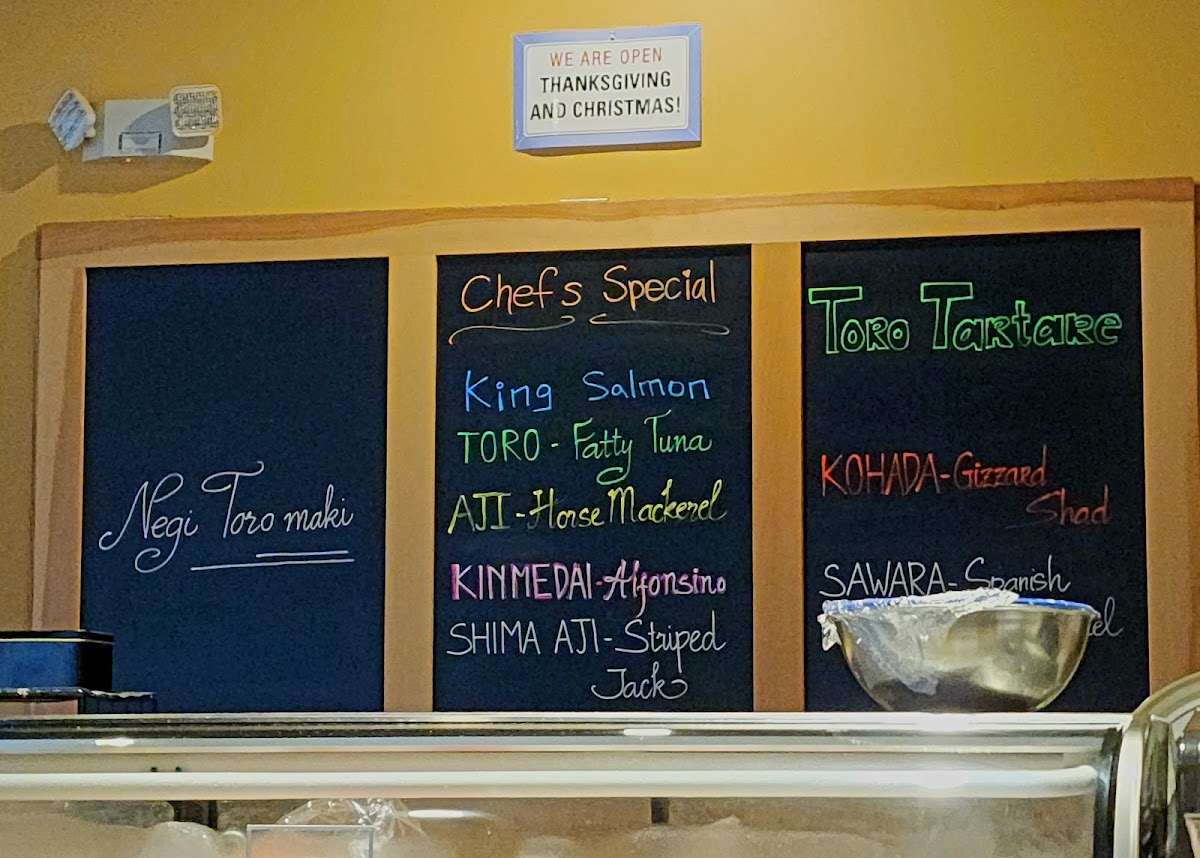 WE ARE OPEN
THANKSGIVING
AND CHRISTMAS!
Negi Toro maki
Chef's Special
King Salmon
TORO - Fatty Tuna
AJI - Horse Mackerel
KINMEDAI - Alfonsino
SHIMA AJI - Striped
Jack
Toro Tartare
KOHADA - Gizzard
Shad
SAWARA - Spanish